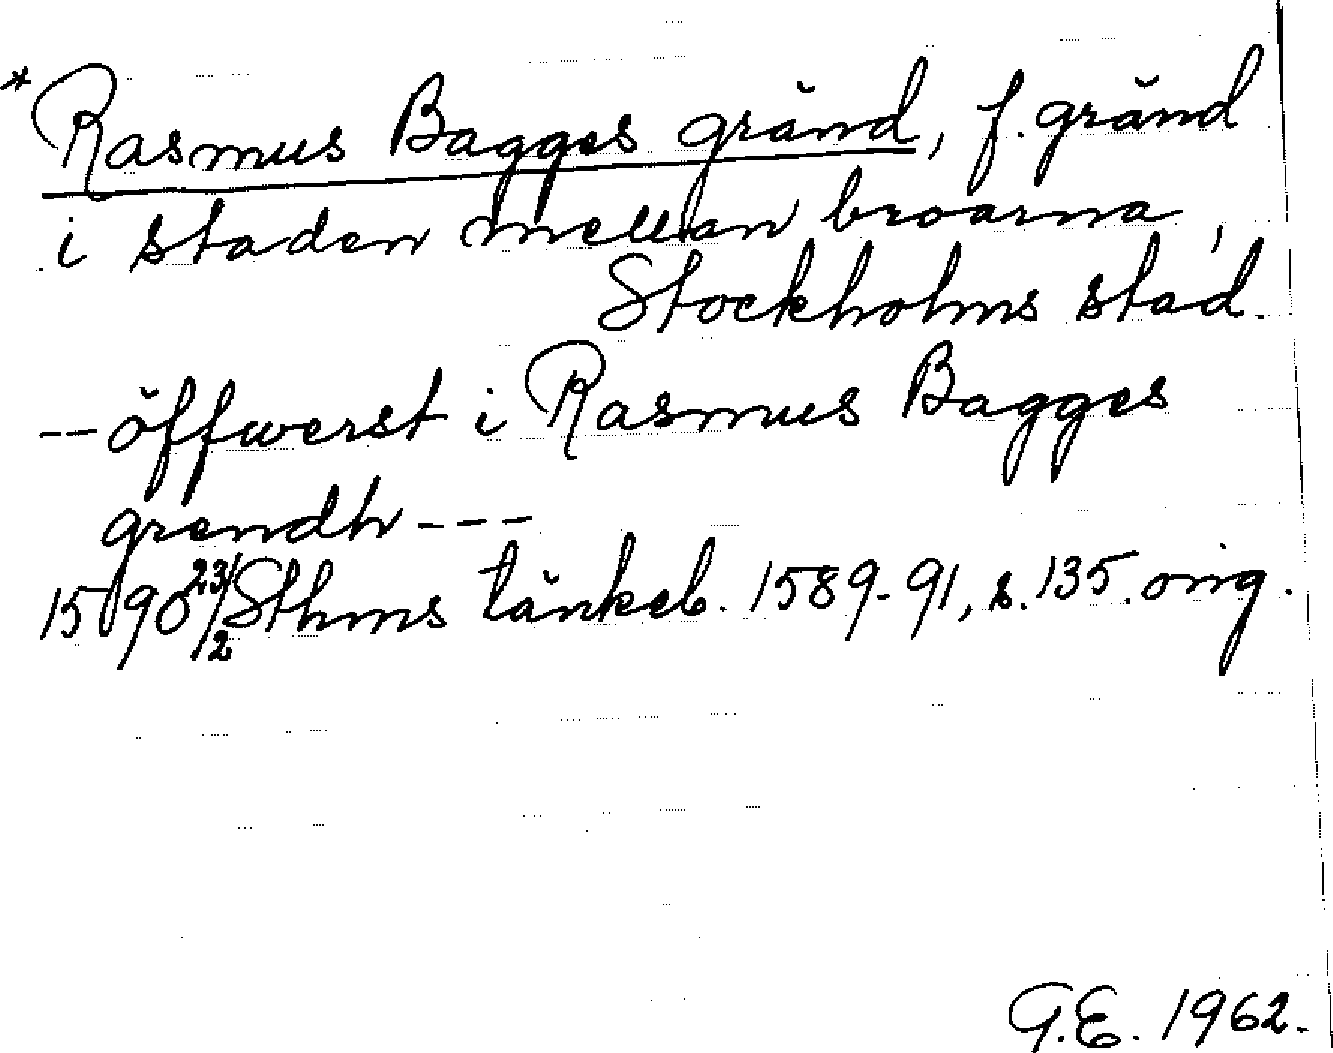 *Rasmus Bagges gränd, f. gränd
i staden mellan broarna,
Stockholms stad.
-- öffwerst i Rasmus Bagges
grendh ---
1590 23/2 Sthms tänkeb. 1589-91, s. 135. orig.
G.E. 1962.